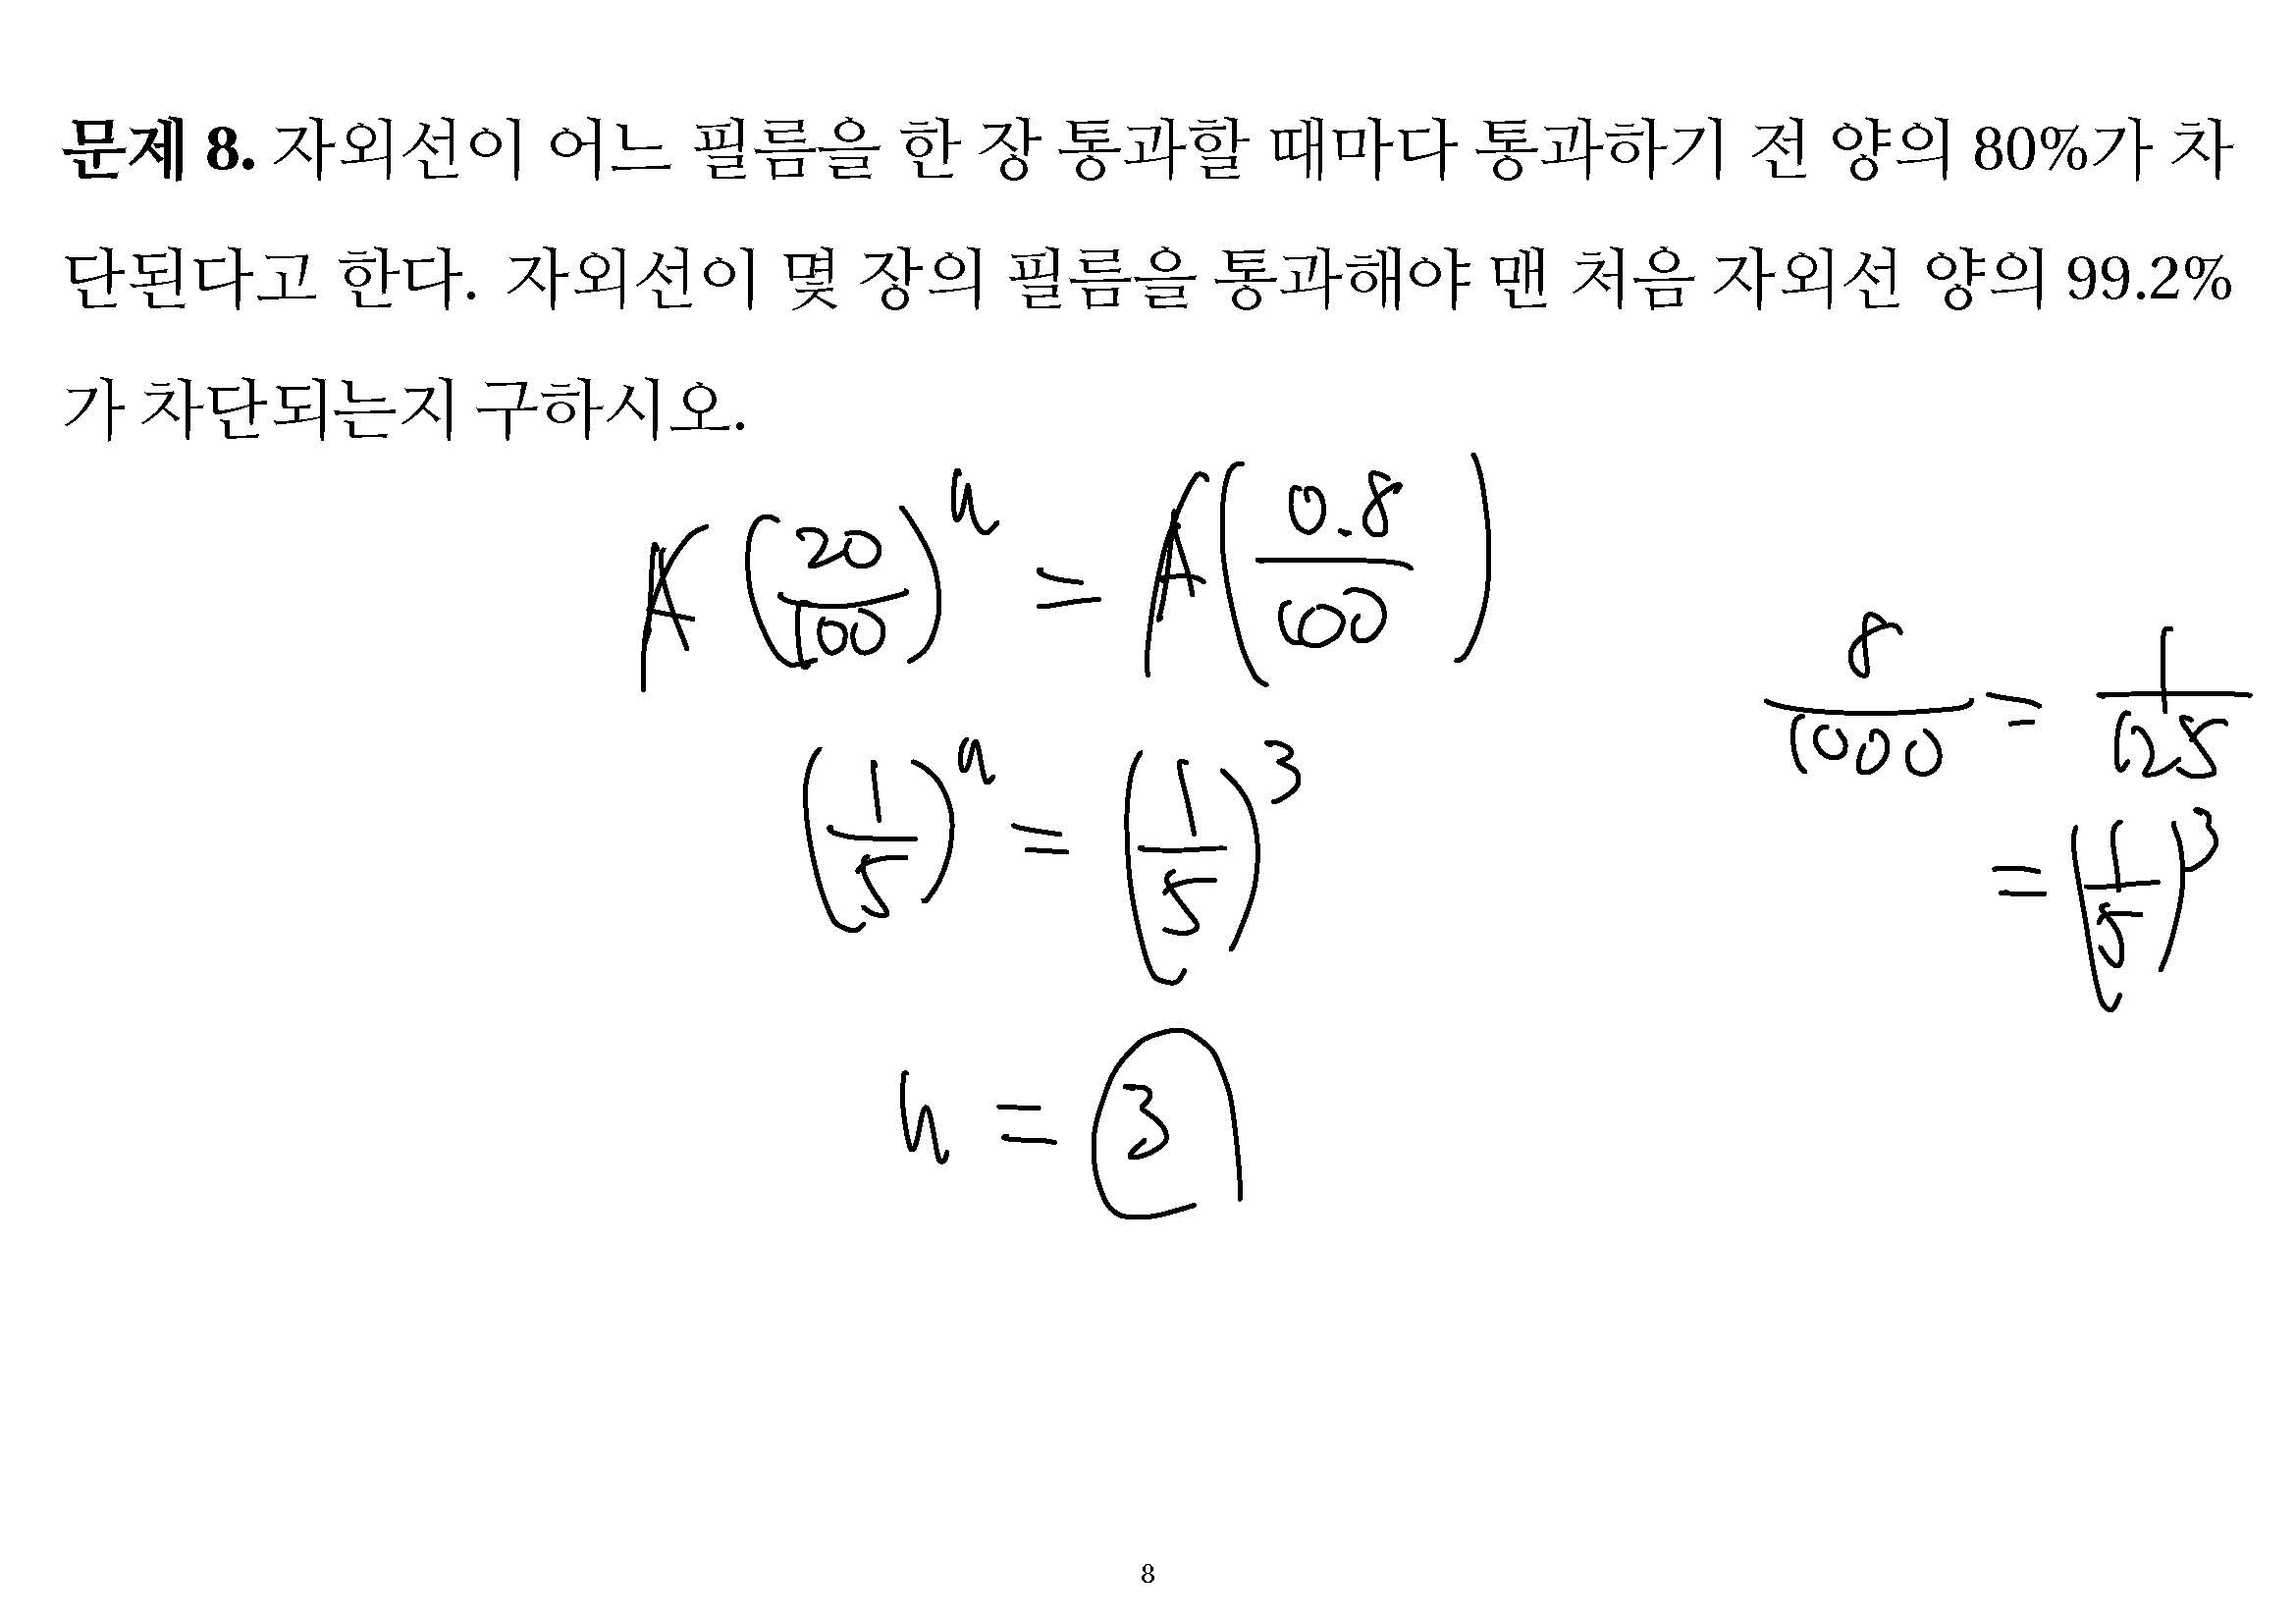 문제 8. 자외선이 어느 필름을 한 장 통과할 때마다 통과하기 전 양의 80%가 차
단된다고 한다. 자외선이 몇 장의 필름을 통과해야 맨 처음 자외선 양의 99.2%
가 차단되는지 구하시오.
A(20/100)^n = A(0.8/100)
8/1000 = 1/125
(1/5)^n = (1/5)^3
= (1/5)^3
n = 3
8